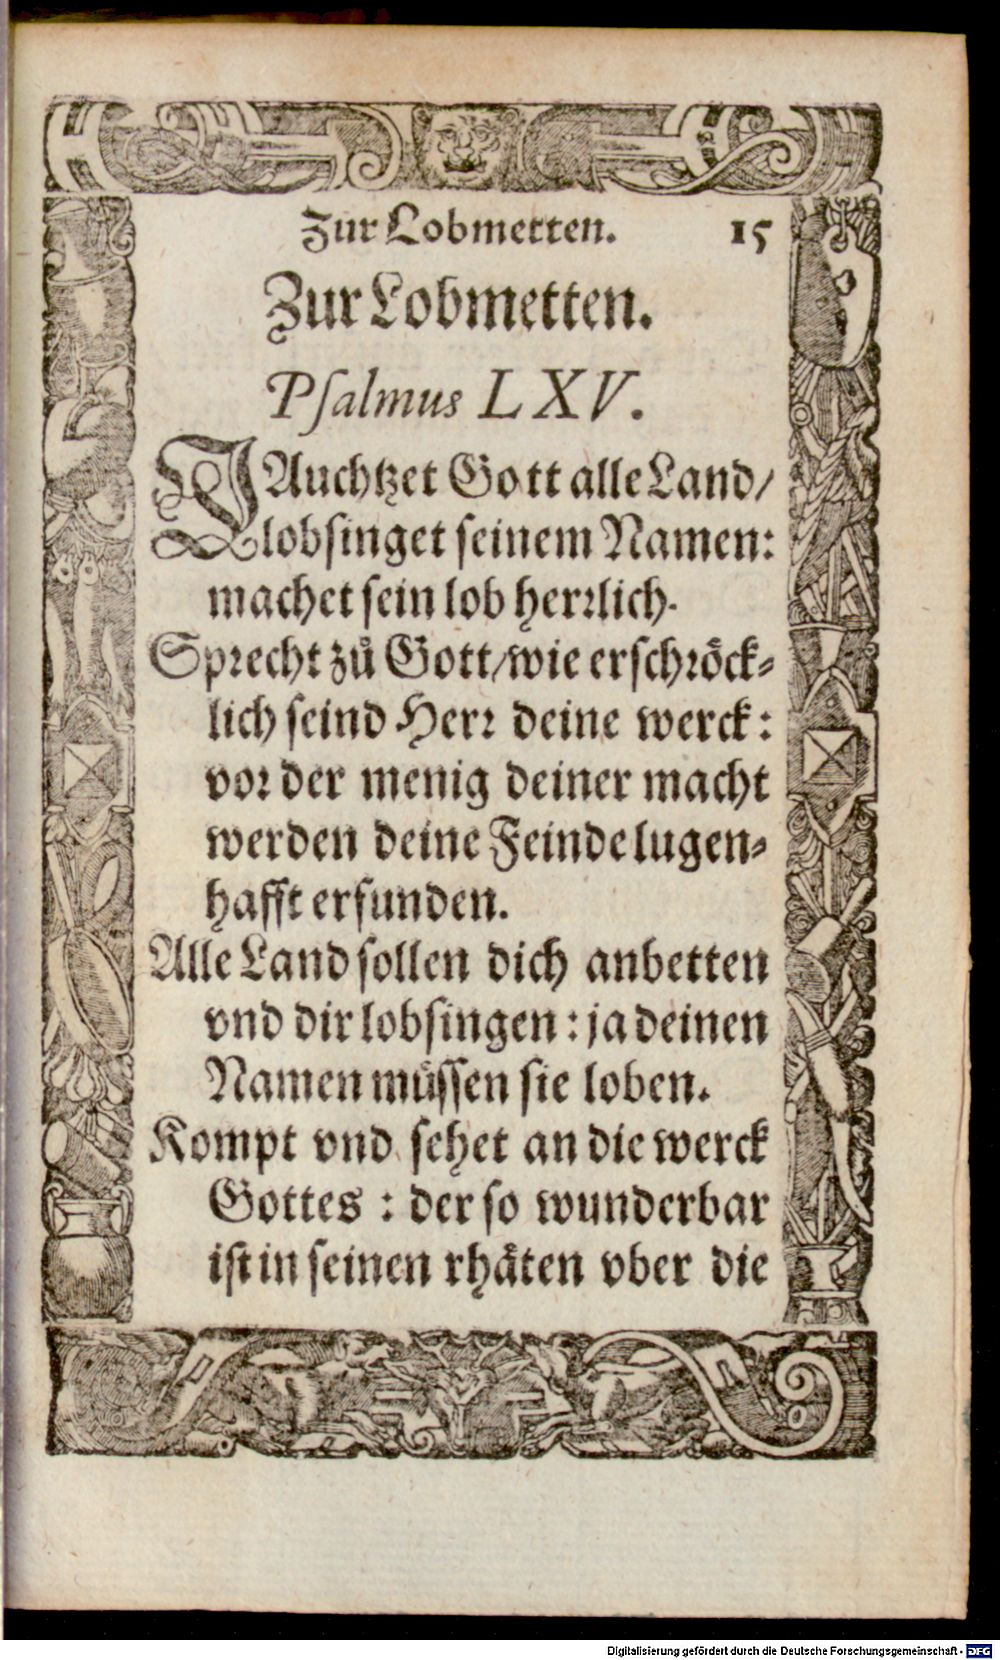 Zur Lobmetten. 15
Zur Lobmetten.
Psalmus LXV.
JAuchtzet Gott alle Land/
lobsinget seinem Namen:
machet sein lob herrlich.
Sprecht zů Gott/wie erschröck-
lich seind Herr deine werck:
vor der menig deiner macht
werden deine Feinde lugen-
hafft erfunden.
Alle Land sollen dich anbetten
vnd dir lobsingen: ja deinen
Namen müssen sie loben.
Kompt vnd sehet an die werck
Gottes: der so wunderbar
ist in seinen rhäten vber die
Digitalisierung gefördert durch die Deutsche Forschungsgemeinschaft - DFG